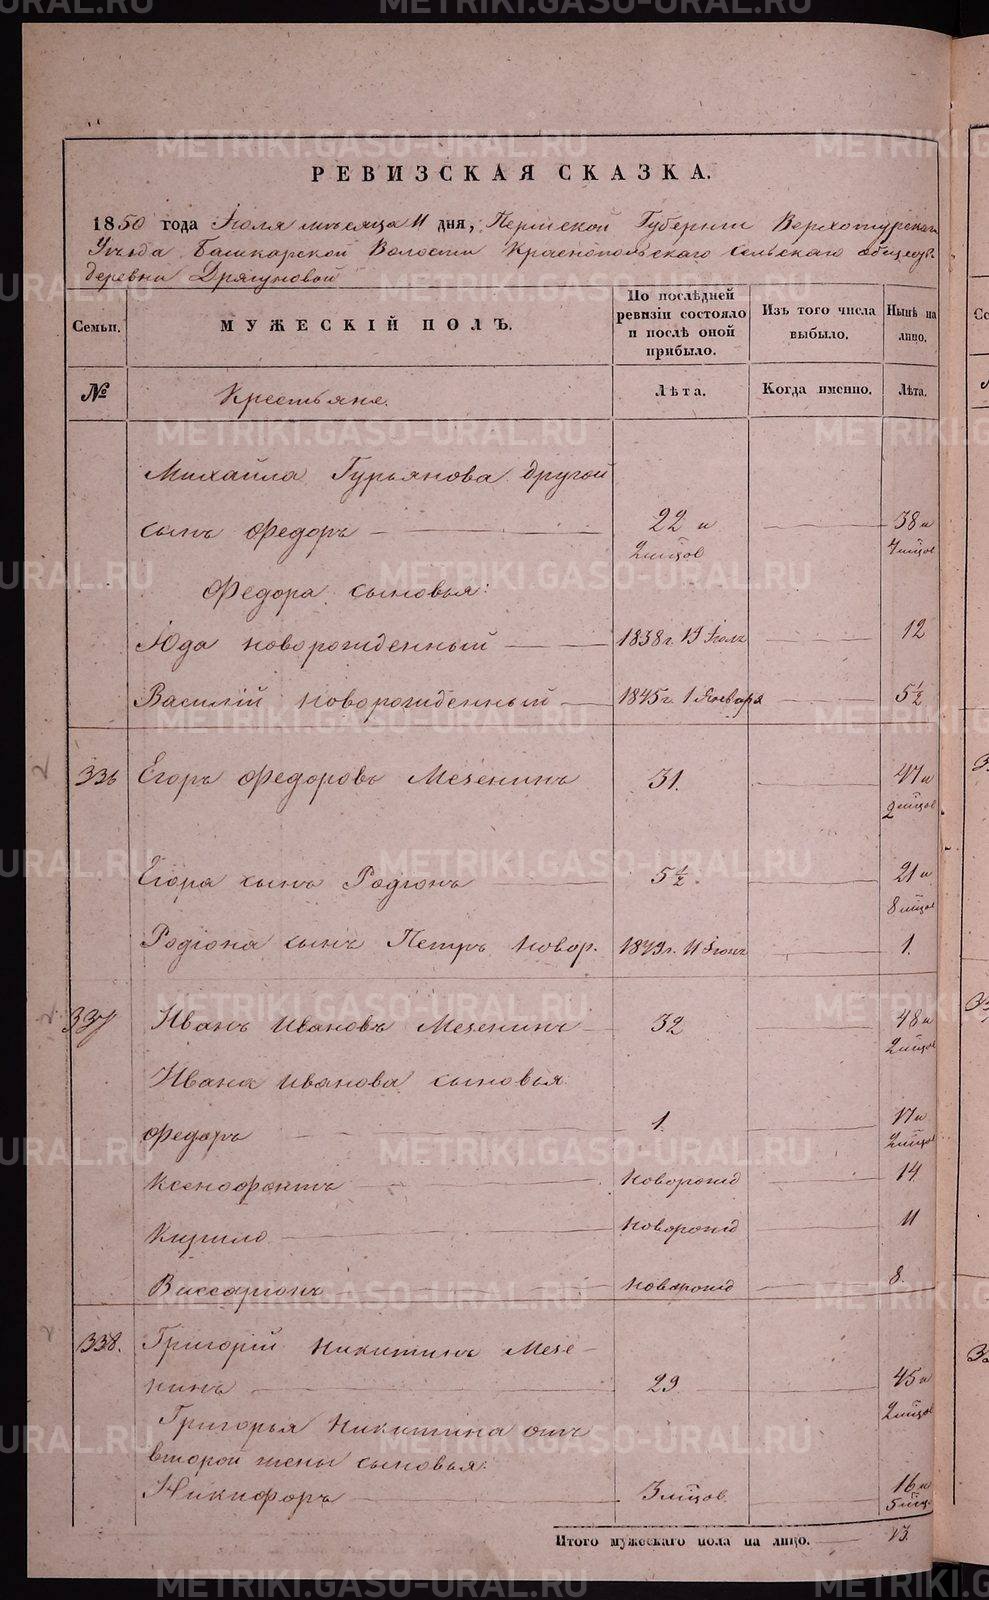 METRIKI.GASO-URAL.RU
РЕВИЗСКАЯ СКАЗКА.
1850 года Іюля мѣсяца 11 дня, Пермской Губерніи Верхотурскаго
Уѣзда Башкарской Волости Краснопольскаго Сельскаго общест.
деревни Дрягуновой
Семьи. МУЖЕСКІЙ ПОЛЪ. По послѣдней ревизіи состояло и послѣ оной прибыло. Изъ того числа выбыло. Нынѣ на лицо.
№ Крестьяне. Лѣта. Когда именно. Лѣта.
Михайла Гурьянова другой
сынъ Федоръ 22 и 2 мѣцов 38 и 4 мѣцов
Федора сыновья:
Юда новорожденный 1838 г. 19 Іюля 12
Василій новорожденный 1845 г. 1 Января 5 1/2
336 Егоръ Федоровъ Мезенинъ 31. 47 и 2 мѣцов
Егора сынъ Родіонъ 5 1/2. 21 и 8 мѣцов
Родіона сынъ Петръ новор. 1849 г. 11 Іюня 1.
337 Иванъ Ивановъ Мезенинъ 32 48 и 2 мѣцов
Ивана Иванова сыновья:
Федоръ 1. 17 и 2 мѣцов
Ксенофонтъ новорожд 14
Кирило новорожд 11
Виссаріонъ новорожд 8.
338. Григорій Никитинъ Мезе-
нинъ 29 45 и 2 мѣцов
Григорья Никитина отъ
второй жены сыновья:
Никифоръ 3 мѣцов. 16 и 5 мѣц.
Итого мужескаго пола на лицо. 13.